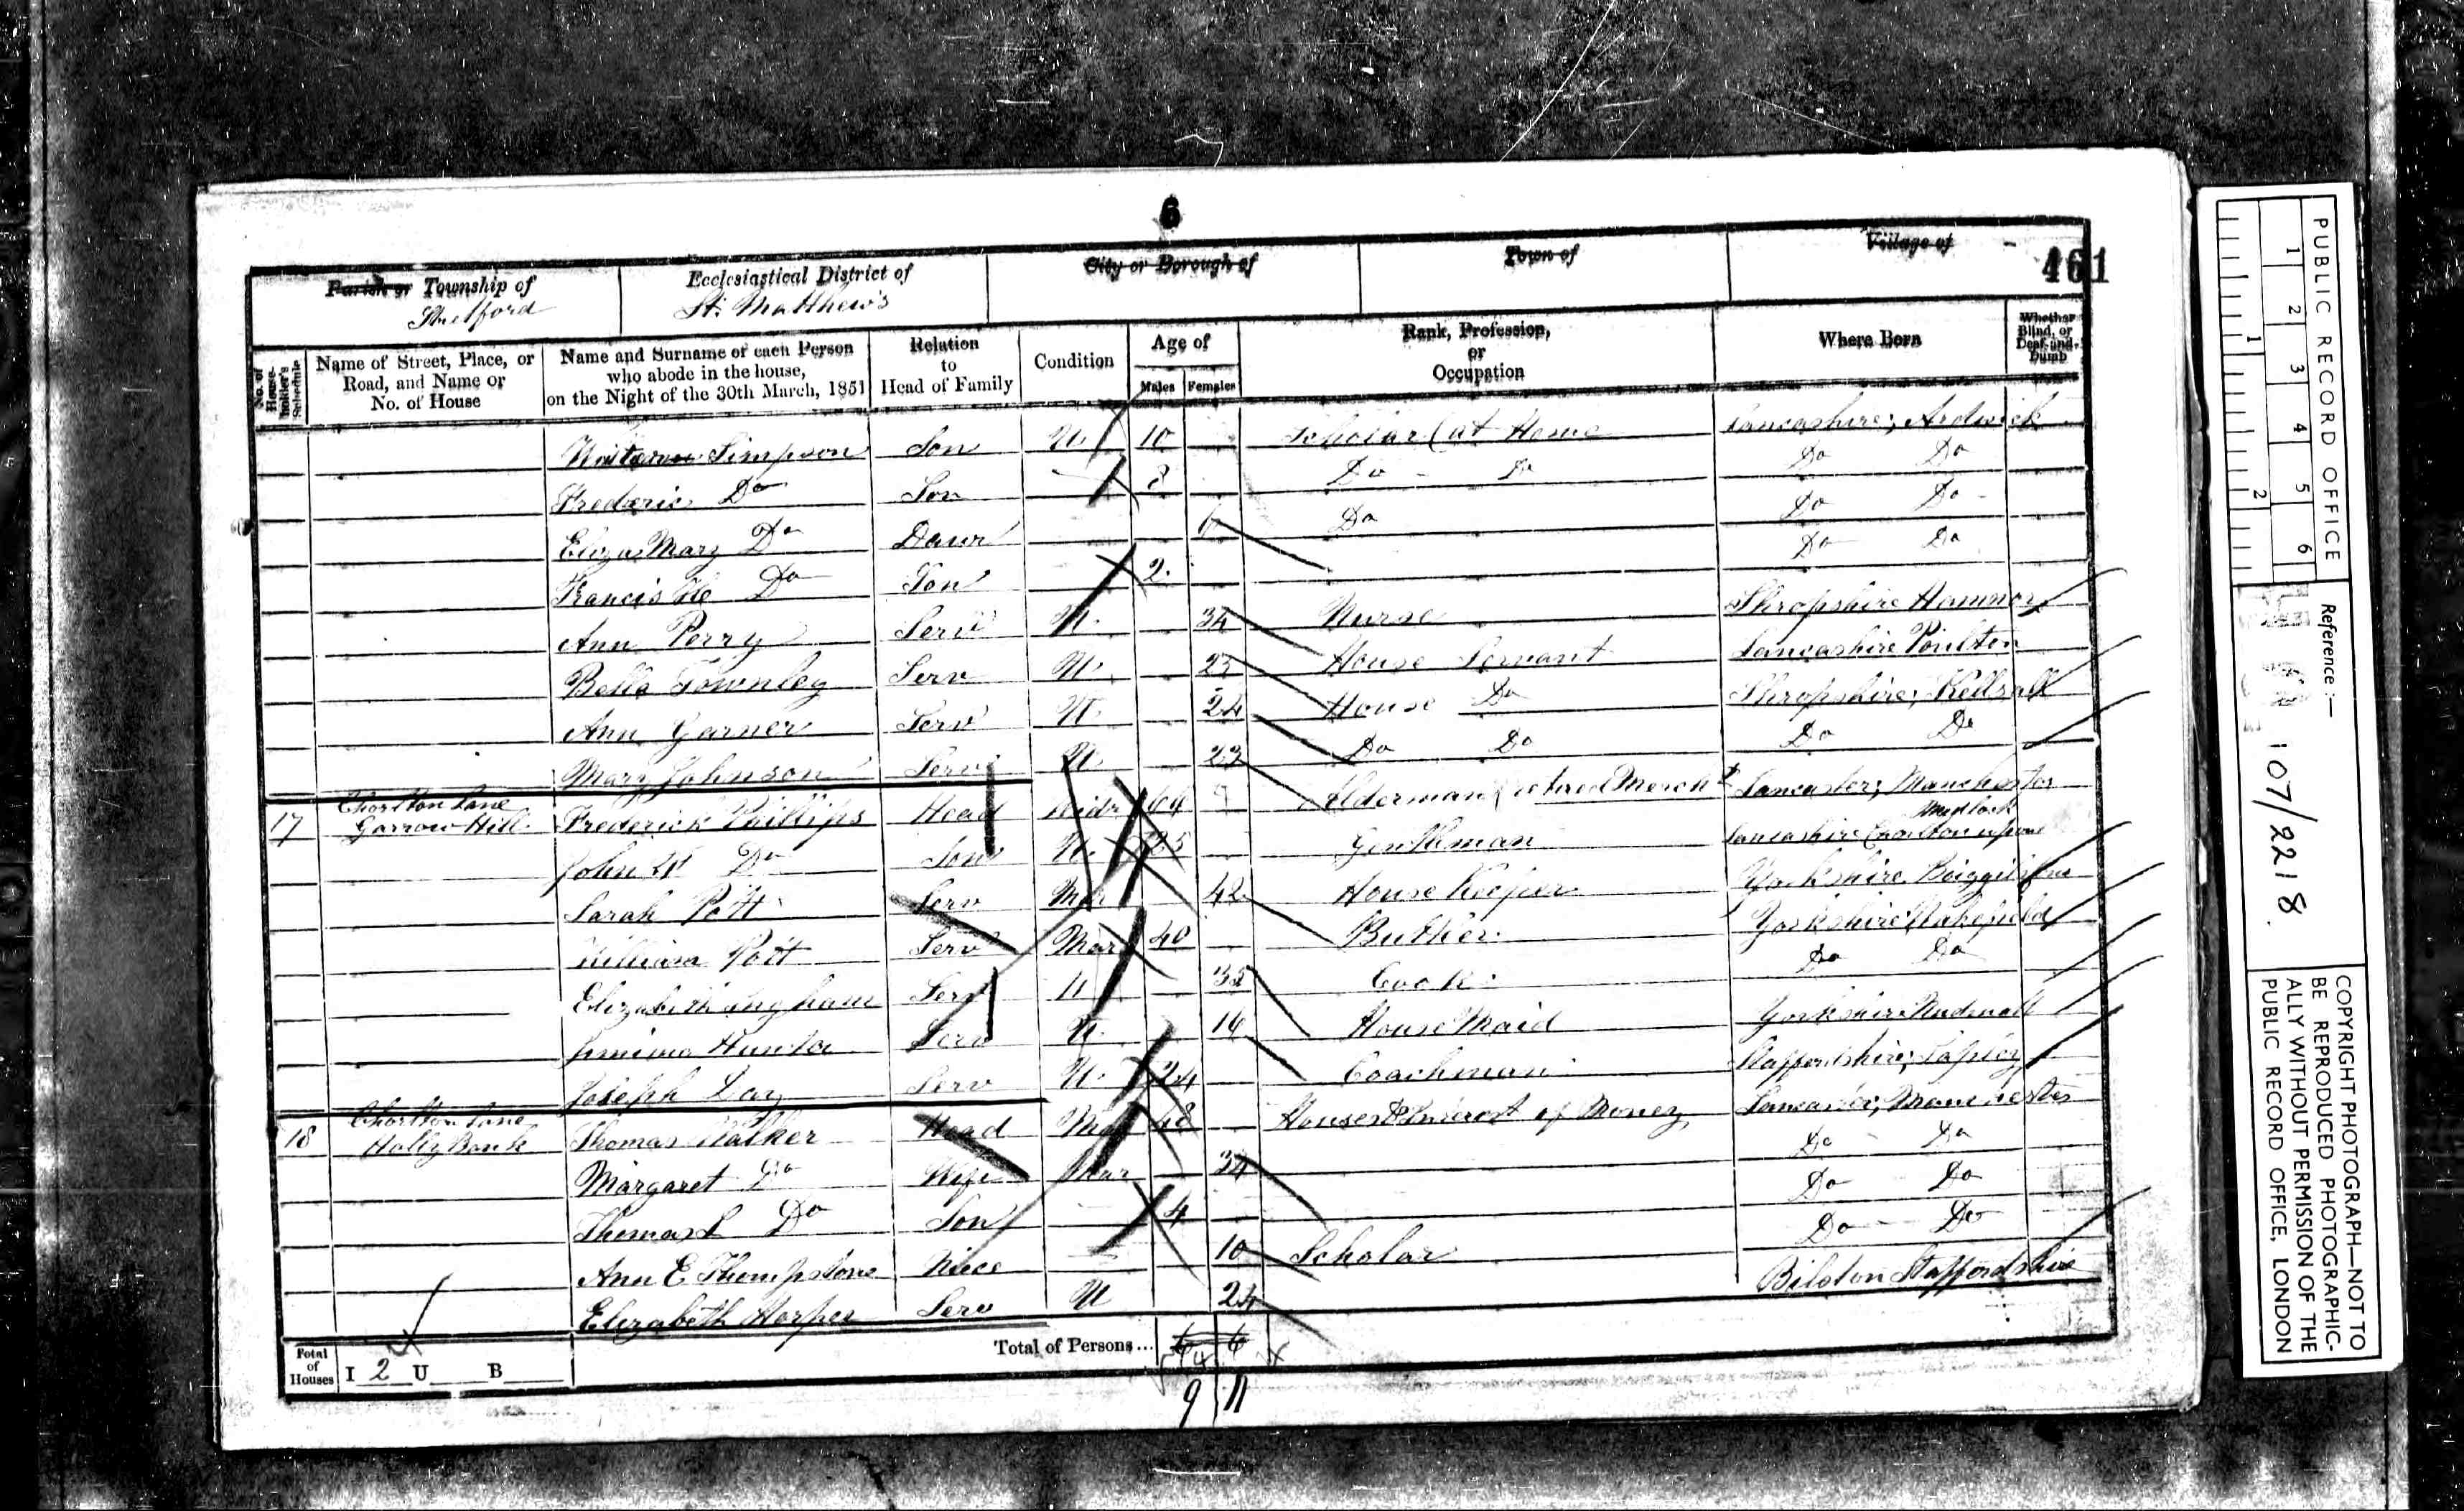 6
461
Parish or Township of
Stretford
Ecclesiastical District of
St. Matthew's
City or Borough of
Town of
Village of
No. of House-holder's Schedule
Name of Street, Place, or Road, and Name or No. of House
Name and Surname of each Person who abode in the house, on the Night of the 30th March, 1851
Relation to Head of Family
Condition
Age of
Males Females
Rank, Profession, or Occupation
Where Born
Whether Blind, or Deaf-and-Dumb
Simpson Son U 10 Scholar (at Home Lancashire; Ardwick
Frederic Do Son 8 Do Do Do Do
Eliza Mary Do Daur 6 Do Do Do
Francis Do Son 2 Do Do
Ann Perry Serv U 34 Nurse Shropshire
Bella Townley Serv U House Servant Lancashire Poulton
Ann Garner Serv U 24 House Do Shropshire; Kellsall
Mary Johnson Serv U 23 Do Do Do Do
17 Chorlton Lane
Garrow Hill Frederick Phillips Head Widr Alderman retired Mercht Lancaster; Manchester
John Do Son U 25 Gentleman Lancashire Chorlton upon Medlock
Sarah Pott Serv Mar 42 House Keeper Yorkshire
William Pott Serv Mar 40 Butler Yorkshire Wakefield
Elizabeth Ingham Serv U 35 Cook Do Do
Jemima Hunter Serv U House Maid Yorkshire
Joseph Day Serv U 24 Coachman Staffordshire;
18 Chorlton Lane
Holly Bank Thomas Walker Head Mar 48 Houses & Interest of Money Lancaster; Manchester
Margaret Do Wife Mar 34 Do Do
Thomas L Do Son 4 Do Do
Ann E Thompstone Niece 10 Scholar Do Do
Elizabeth Harper Serv U 24 Bilston Staffordshire
Total of Houses I 2 U B
Total of Persons... 6 6
9 11
PUBLIC RECORD OFFICE
1 2 3 4 5 6
1 2
Reference :—
107/2218.
COPYRIGHT PHOTOGRAPH—NOT TO
BE REPRODUCED PHOTOGRAPHIC-
ALLY WITHOUT PERMISSION OF THE
PUBLIC RECORD OFFICE, LONDON